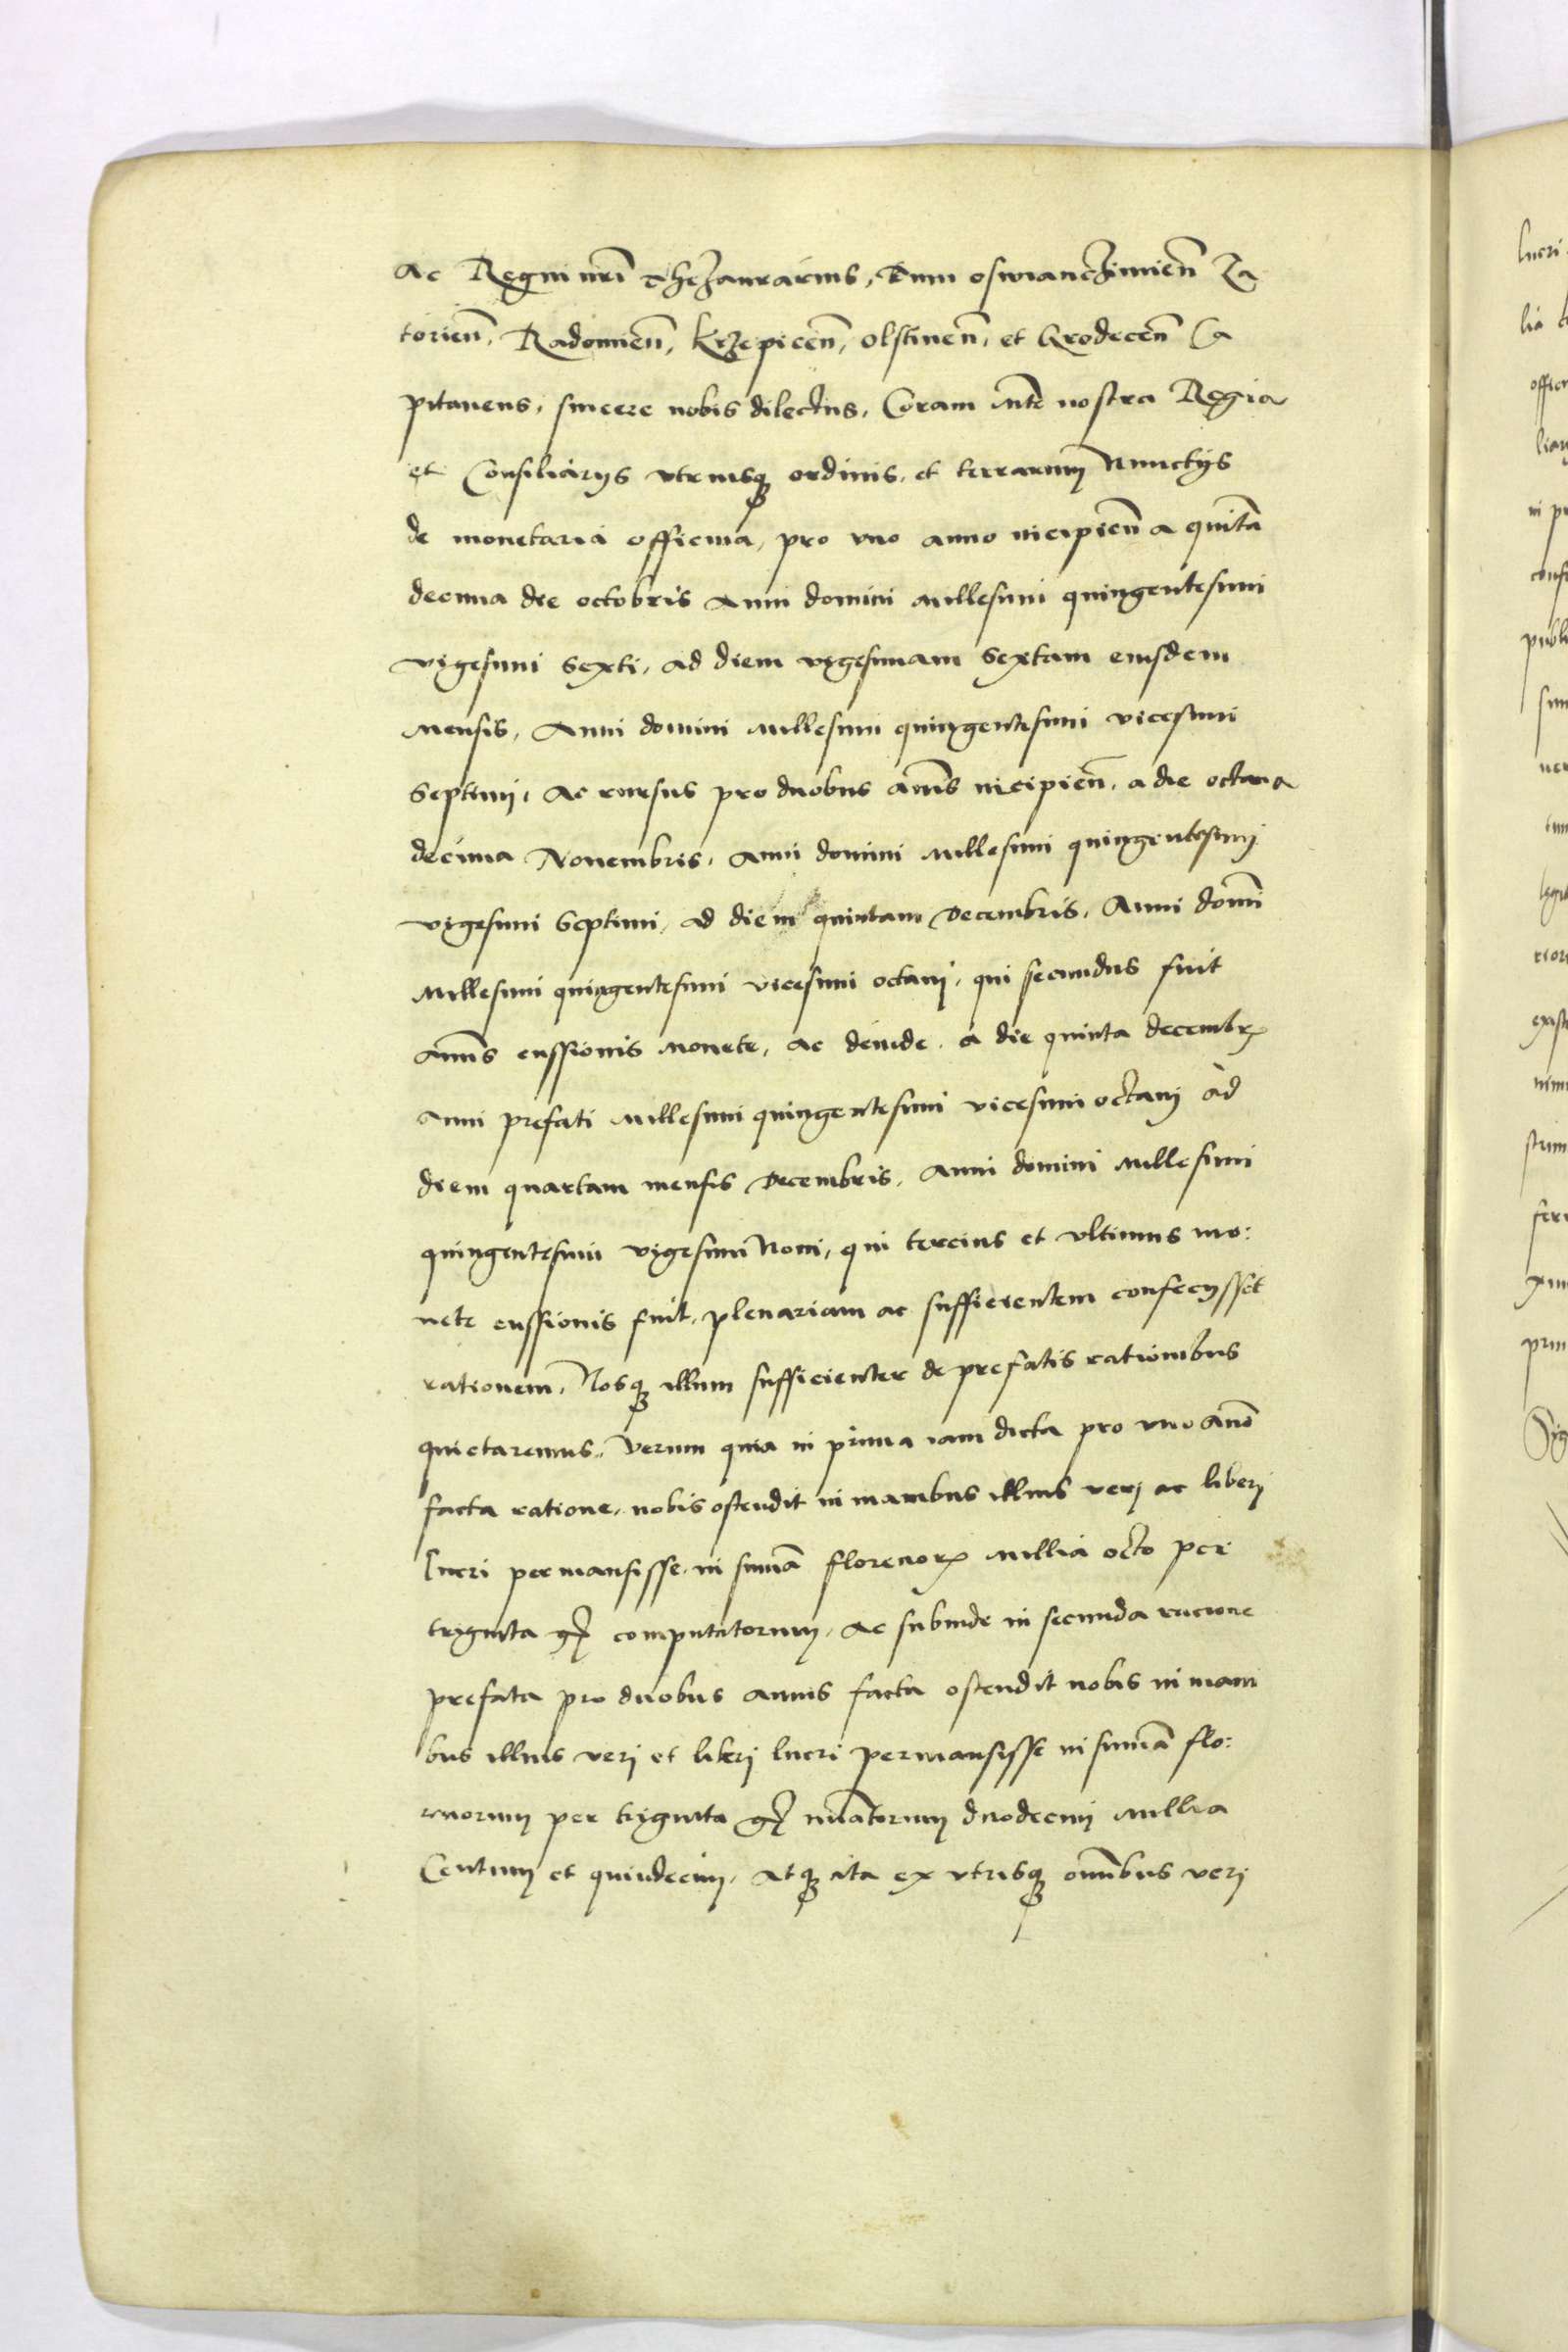 Ac Regni nrī Thezaurarius, Dum oswianczimieñ Za
torieñ, Radomieñ, krzepiceñ, olstineñ, et Grodeceñ Ca
pitaneus, sincere nobis dilectus, Coram Mte nostra Regia
et Consiliarys vtriusq ordinis, et terrarum Nunctys
de monetaria officina, pro vno anno incipieñ a quīta
decima die octobris Anni domini Millesimi quingentesimi
vigesimi Sexti, ad diem vigesimam Sextam eiusdem
Mensis, Anni domini Millesimi quingentesimi vicesimi
Septimi, Ac rursus pro duobus anīs incipieñ, a die octaua
decima Nouembris, Anni domini Millesimi quingentesimj
vigesimi Septimi, ad diem quintam Decembris, Anni domī
Millesimi quingentesimi vicesimi octaui, qui secundus fuit
annus cussionis Monete, ac deinde, a die quinta decembr
Anni prefati Millesimi quingentesimi vicesimi octauj ad
diem quartam mensis Decembris, Anni domini Millesimi
quingentesimi vigesimi Noni, qui tercius et vltimus mo:
nete cussionis fuit, plenariam ac sufficientem confecysset
rationem, Nosq illum sufficienter de prefatis rationibus
quietaremus, Verum quia in prima iam dicta pro vno anō
facta ratione, nobis ostendit in manibus illius verj ac liberj
lucri permansisse, in sumā florenor Millia octo per
triginta gr computatorum, Ac subinde in secunda racione
prefata pro duobus annis facta ostendit nobis in mani
bus illius verj et liberj lucri permansisse in sumā flo:
renorum per triginta gr nūatorum duodecim Millia
Centum et quindecim, Atq ita ex vtrisq omībus verj